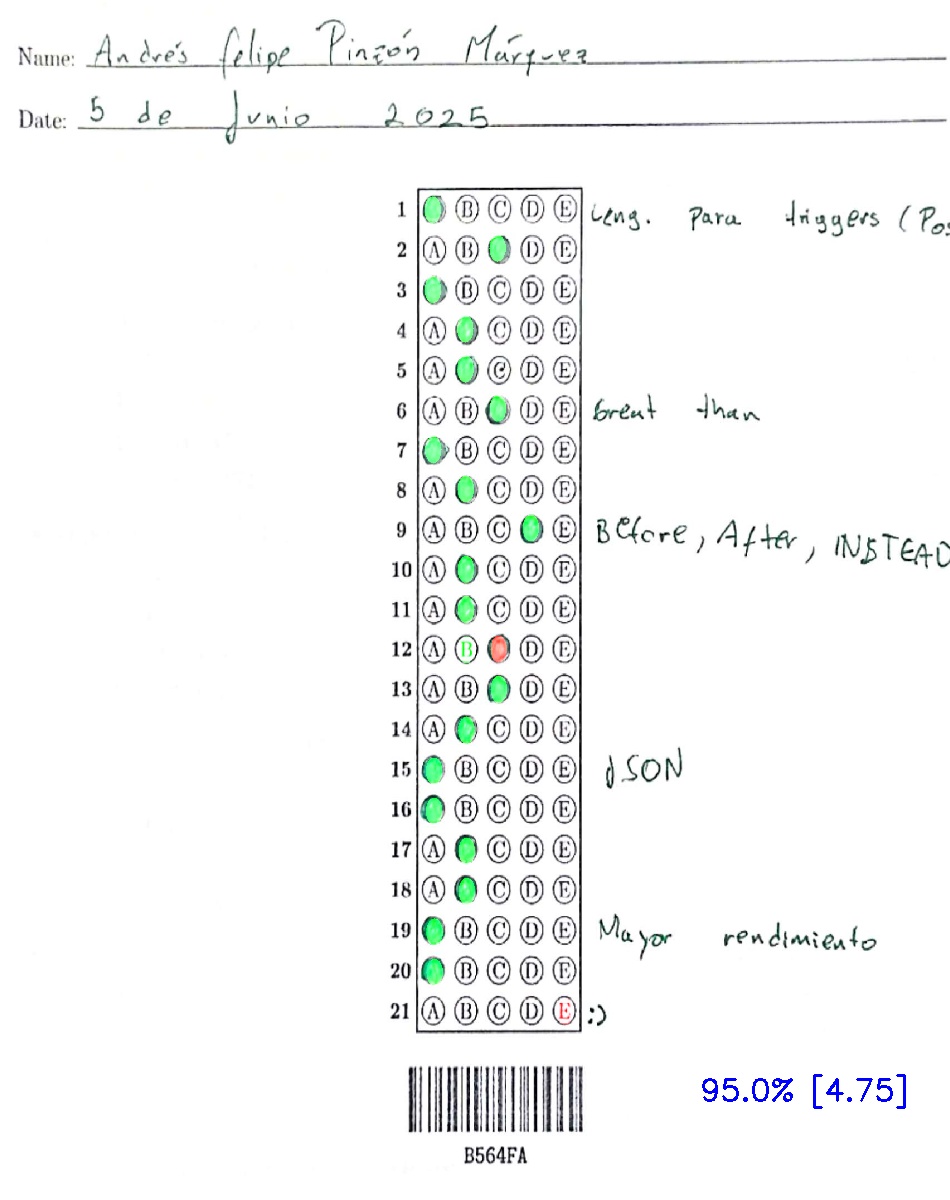 Name: Andrés Felipe Pinzón Márquez
Date: 5 de Junio 2025
1 B C D E Leng. para triggers (Pos
2 A B D E
3 B C D E
4 A C D E
5 A C D E
6 A B D E Great than
7 B C D E
8 A C D E
9 A B C E Before, After, INSTEAD
10 A C D E
11 A C D E
12 A B D E
13 A B D E
14 A C D E
15 B C D E JSON
16 B C D E
17 A C D E
18 A C D E
19 B C D E Mayor rendimiento
20 B C D E
21 A B C D E :)
95.0% [4.75]
B564FA